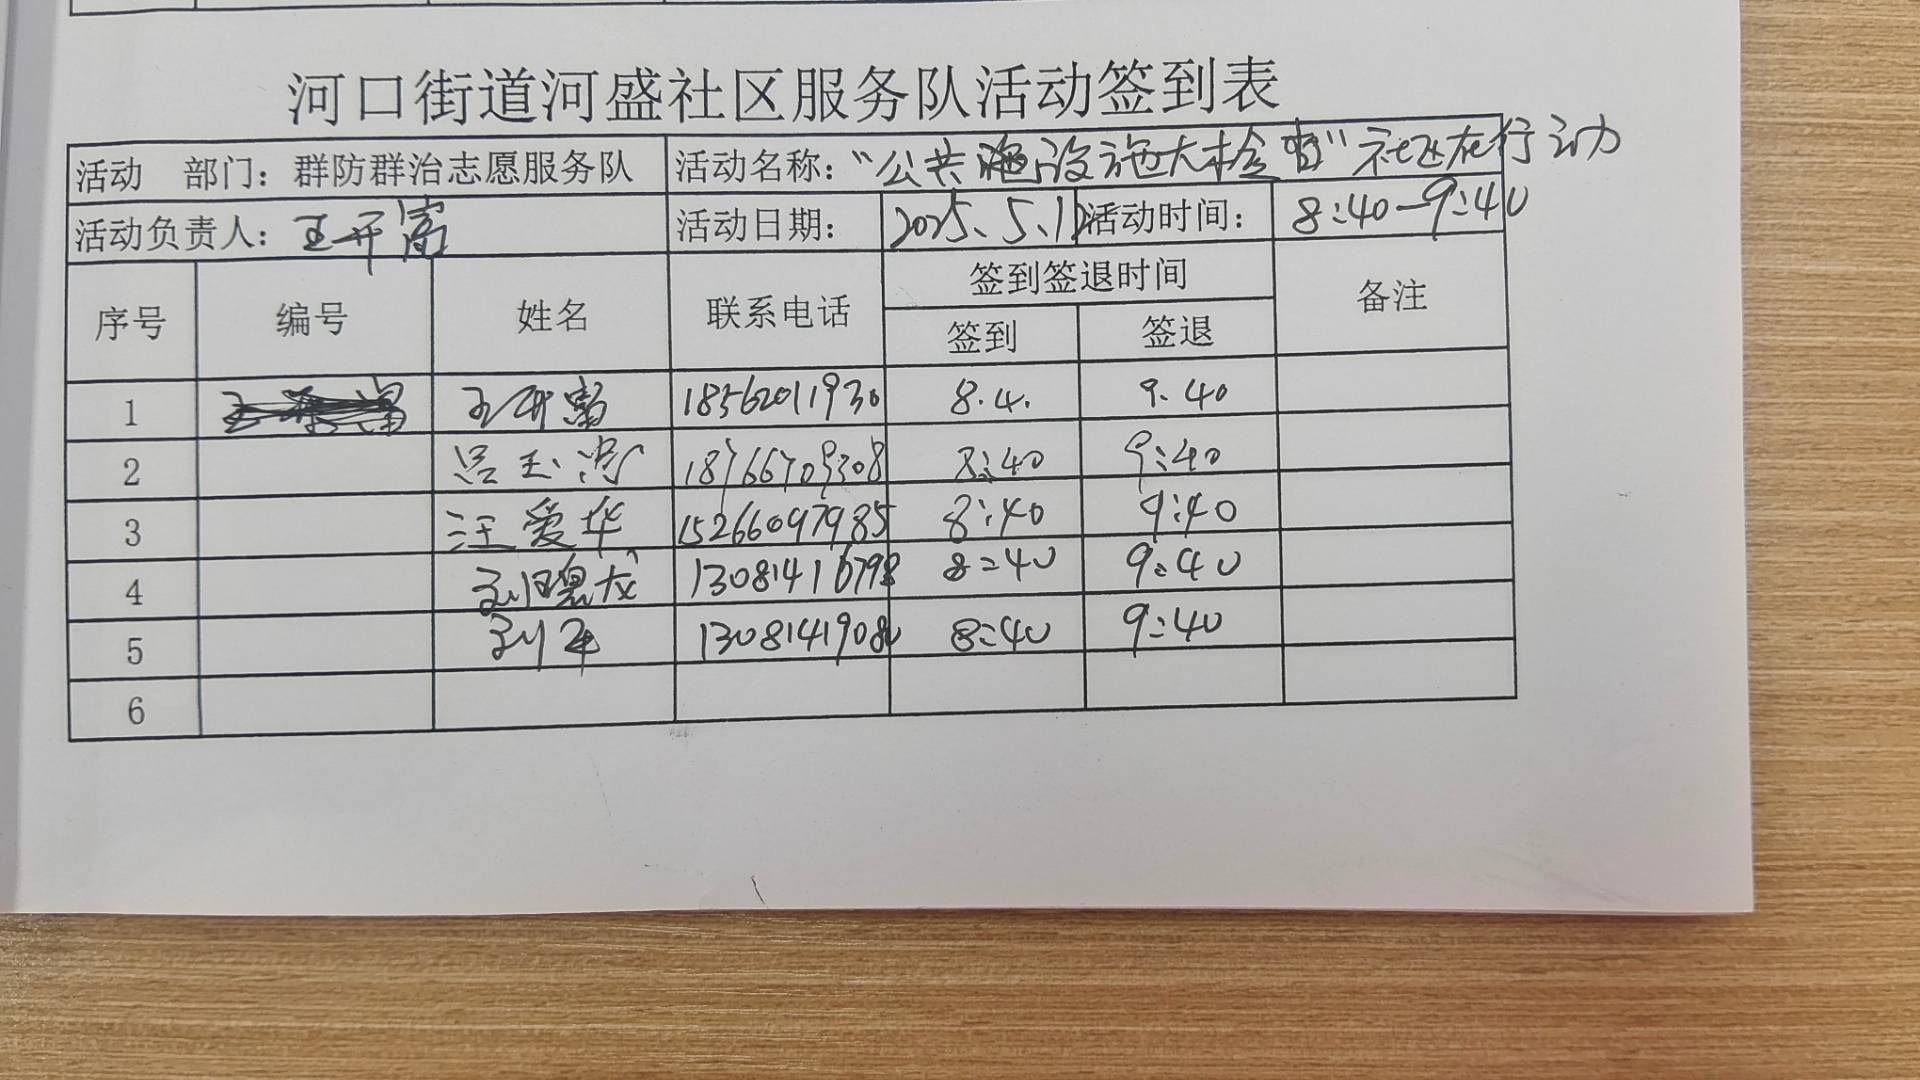 河口街道河盛社区服务队活动签到表
活动 部门：群防群治志愿服务队 活动名称：“公共设施大检查”社区在行动
活动负责人：王开富 活动日期：2025.5.12 活动时间：8:40-9:40
序号 编号 姓名 联系电话 签到签退时间 备注
签到 签退
1 王开富 18562011930 8.4. 9.40
2 吕玉 18766709308 8:40 9:40
3 汪爱华 15266097985 8:40 9:40
4 刘 龙 13081416798 8:40 9:40
5 刘军 13081419080 8:40 9:40
6